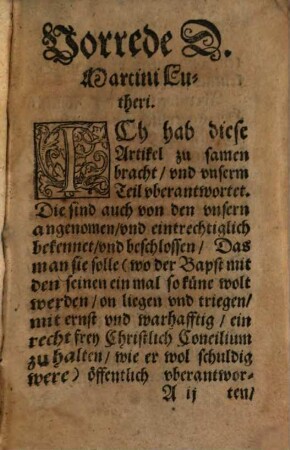 Vorrede D.
Martini Lu-
theri.
ICh hab diese
Artikel zu samen
bracht/ vnd vnserm
Teil vberantwortet.
Die sind auch von den vnsern
angenomen/ vnd eintrechtiglich
bekennet/ vnd beschlossen/ Das
man sie solle (wo der Bapst mit
den seinen ein mal so küne wolt
werden/ on liegen vnd triegen/
mit ernst vnd warhafftig/ ein
recht frey Christlich Concilium
zu halten/ wie er wol schuldig
were) öffentlich vberantwor-
A ij ten/